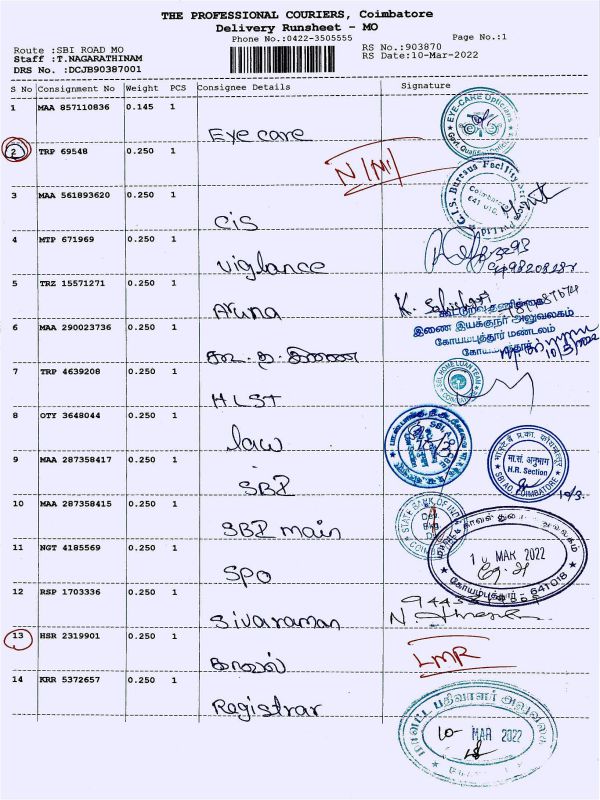 THE PROFESSIONAL COURIERS, Coimbatore
Delivery Runsheet - MO
Phone No.:0422-3505555
Page No.:1
Route :SBI ROAD MO
RS No.:903870
Staff :T.NAGARATHINAM
RS Date:10-Mar-2022
DRS No. :DCJB90387001
S No Consignment No Weight PCS Consignee Details Signature
1 MAA 857110836 0.145 1
Eye care
EYE-CARE Opticians
2 TRP 69548 0.250 1
N/M/
3 MAA 561893620 0.250 1
Cis
Coimbatore
641 018.
4 MTP 671969 0.250 1
vigilance
5 TRZ 15571271 0.250 1
Aruna
6 MAA 290023736 0.250 1
இணை இயக்குநர் அலுவலகம்
கோயமுத்தூர் மண்டலம்
கோயமுத்தூர்
10/3/2022
7 TRP 4639208 0.250 1
HLST
SBI HOME LOAN TEAM
8 OTY 3648044 0.250 1
law
9 MAA 287358417 0.250 1
SBI
मा.सं. अनुभाग
H.R. Section
SBI AO, COIMBATORE
10/3
10 MAA 287358415 0.250 1
SBI main
STATE BANK OF INDIA
11 NGT 4185569 0.250 1
SPO
10 MAR 2022
கோயம்புத்தூர் - 641 018
12 RSP 1703336 0.250 1
Sivaraman
13 HSR 2319901 0.250 1
LMR
14 KRR 5372657 0.250 1
Registrar
மாவட்ட பதிவாளர் அலுவலகம்
10- MAR 2022